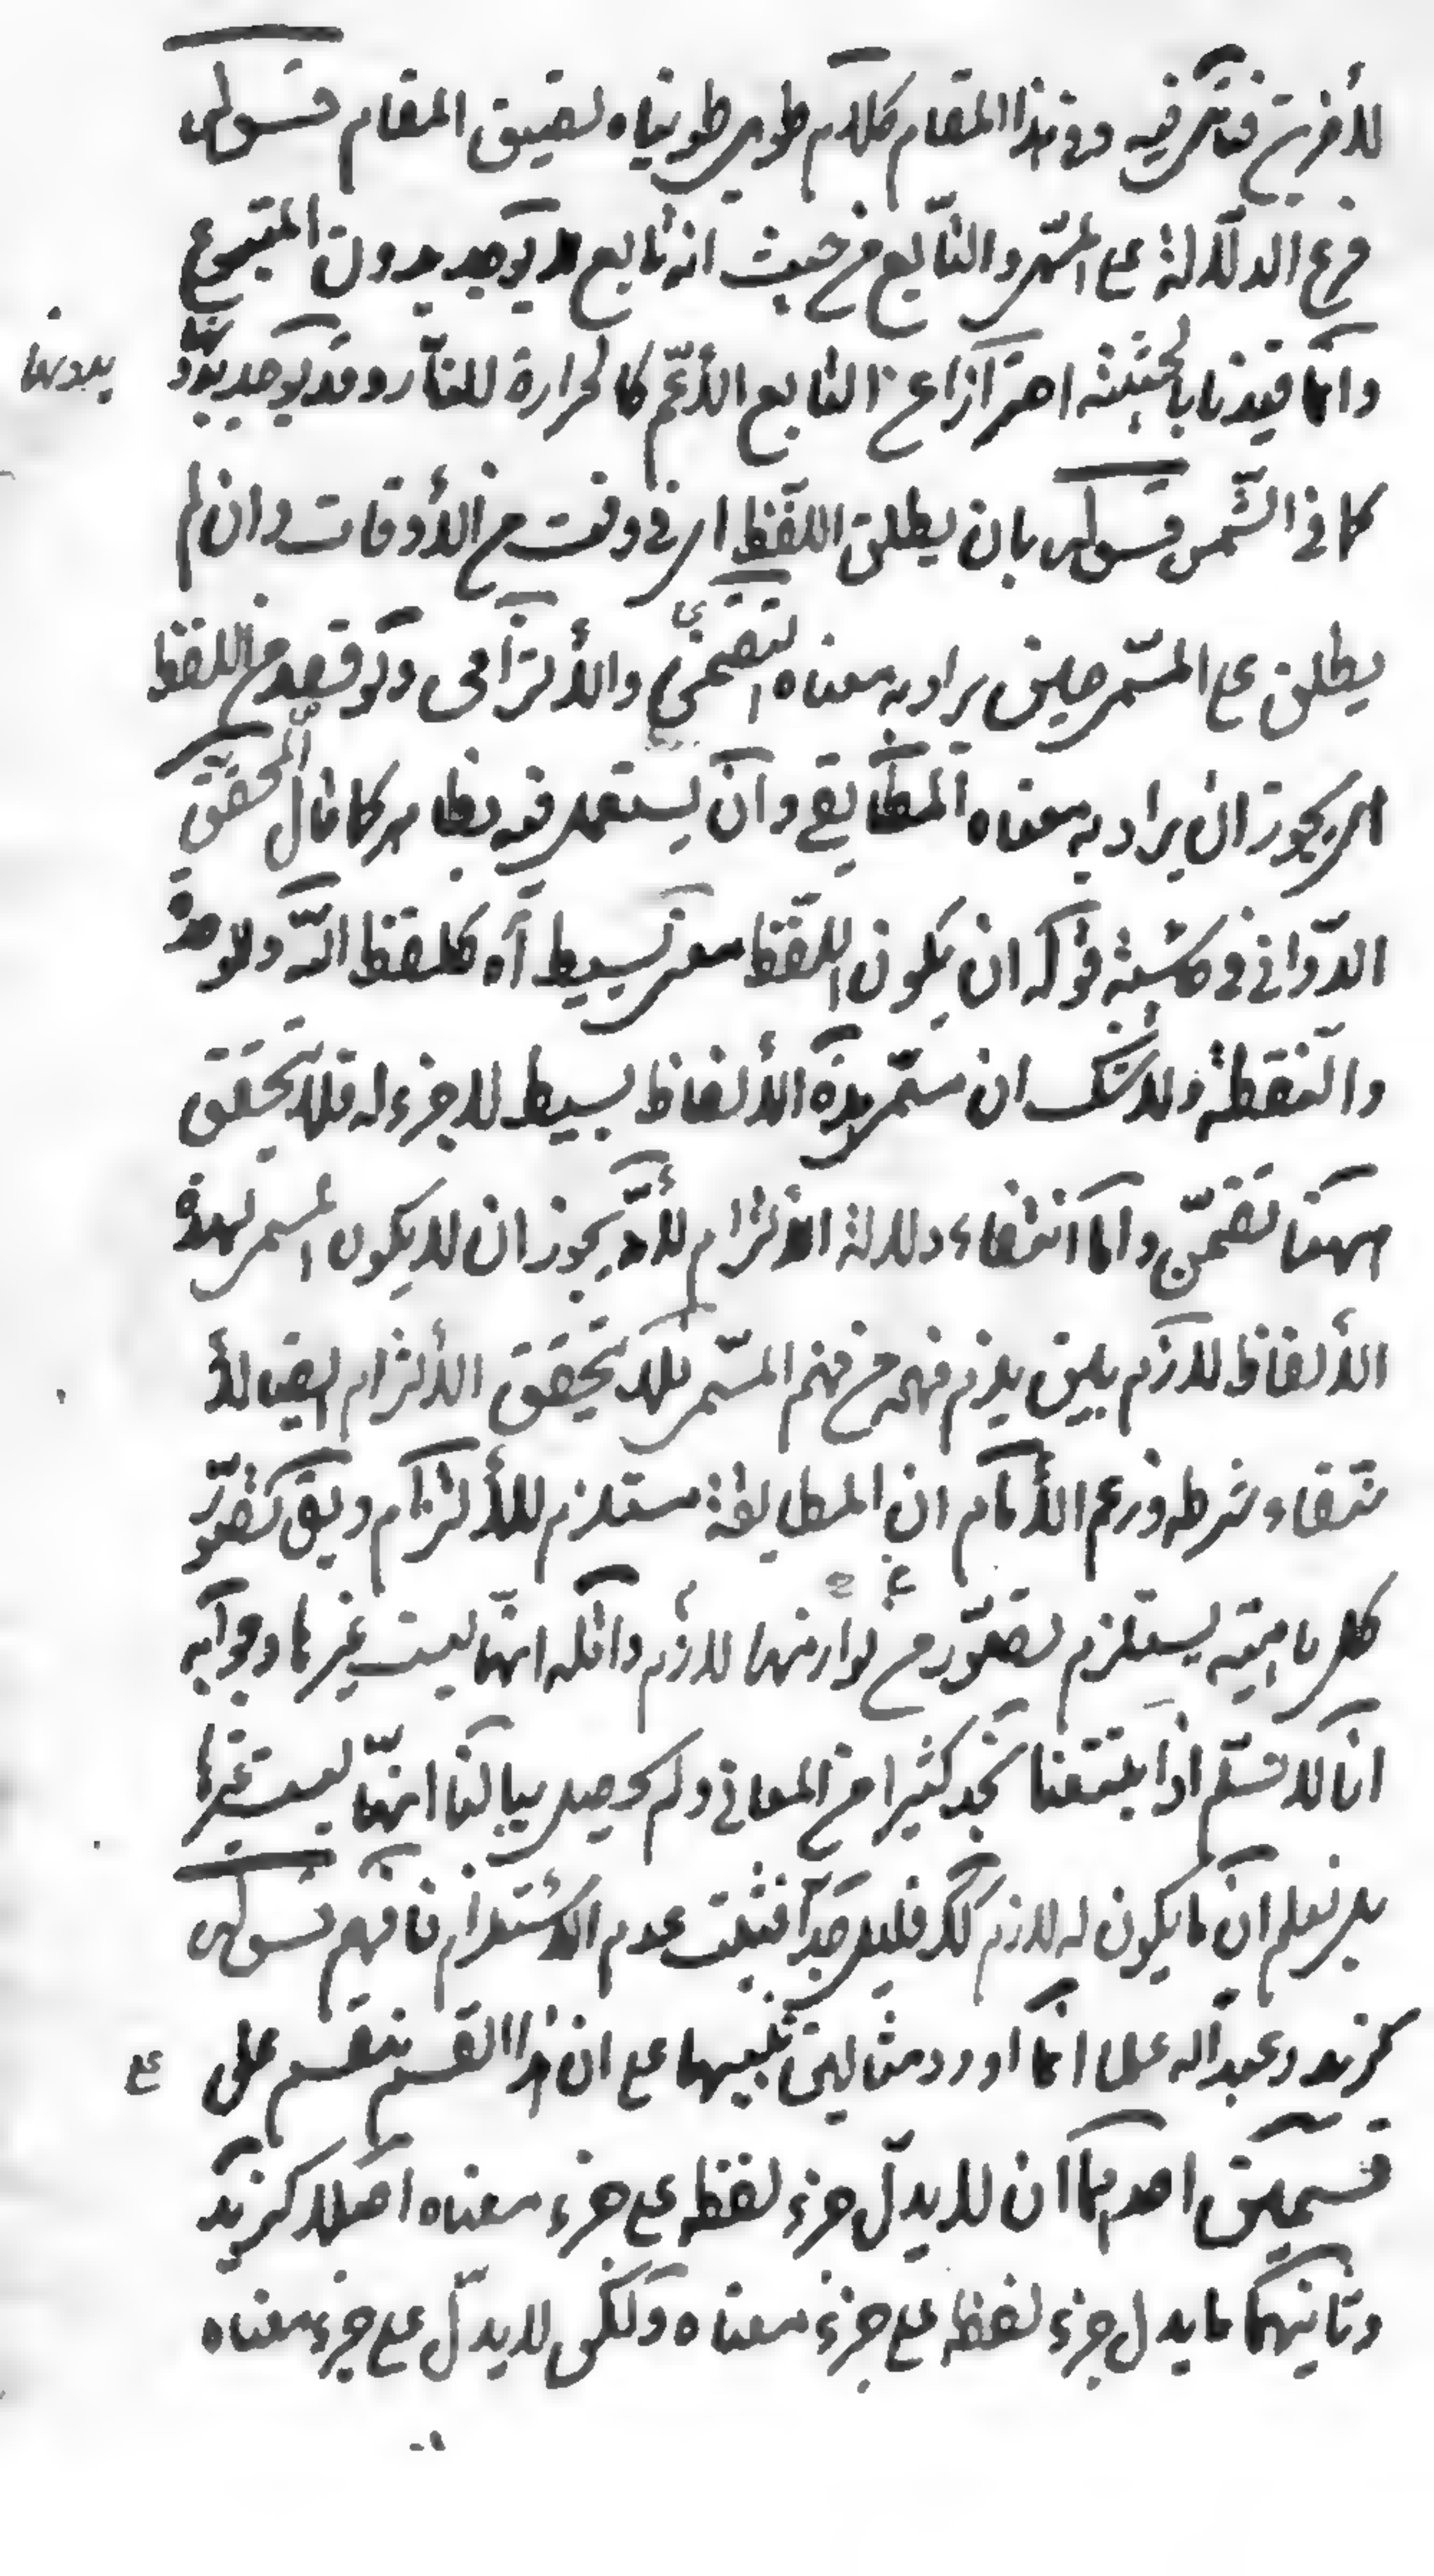 للأخرين فتأمل فيه وفي هذا المقام كلام طويل طويناه لضيق المقام قوله
فرع الدلالة على المسمى والتابع من حيث انه تابع لا يوجد بدون المتبوع
وانما قيدنا بالحيثية احترازا عن التابع الأعم كالحرارة للنار وقد يوجد بدونها
بدونها
كما في الشمس قوله بان يطلق اللفظ اى في وقت من الأوقات وان لم
يطلق على المسمى حين يراد به معناه التضمني والألتزامى ولو قصد من اللفظ
اى يجوز ان يراد به معناه المطابقي وان يستعمل فيه بظاهر كما قال المحقق
الدوانى في حاشية قوله ان يكون اللفظ معنى بسيط آه كلفظ الله والوحدة
والنقطة ولا شك ان مسمى هذه الألفاظ بسيط لا جزء له فلا يتحقق
ههنا تضمن واما انتفاء دلالة الالتزام لأنه يجوز ان لا يكون المسمى لهذه
الألفاظ لازم بين يلزم فهمه من فهم المسمى فلا يتحقق الألتزام ايضا لأ
نتفاء شرطه وزعم الأمام ان المطابقة مستلزم للألتزام ويق تصور
كل ماهية يستلزم تصور من لوازمها لازم واقله انها ليست غيرها وجوابه
انا لا نسلم اذا بتتبعنا نجد كثيرا من المعانى ولم يحصل ببالنا انها ليست غيرها
بل نعلم ان ما يكون له لازم كك قليل جدا فثبت عدم الأستلزام فافهم قوله
كزيد وعبد الله علما انما اورد مثالين تنبيها على ان هذا القسم ينقسم على
ع
قسمين احدهما ان لا يدل جزء لفظه على جزء معناه اصلا كزيد
وثانيهما ما يدل جزء لفظه على جزء معناه ولكن لا يدل على جزء معناه